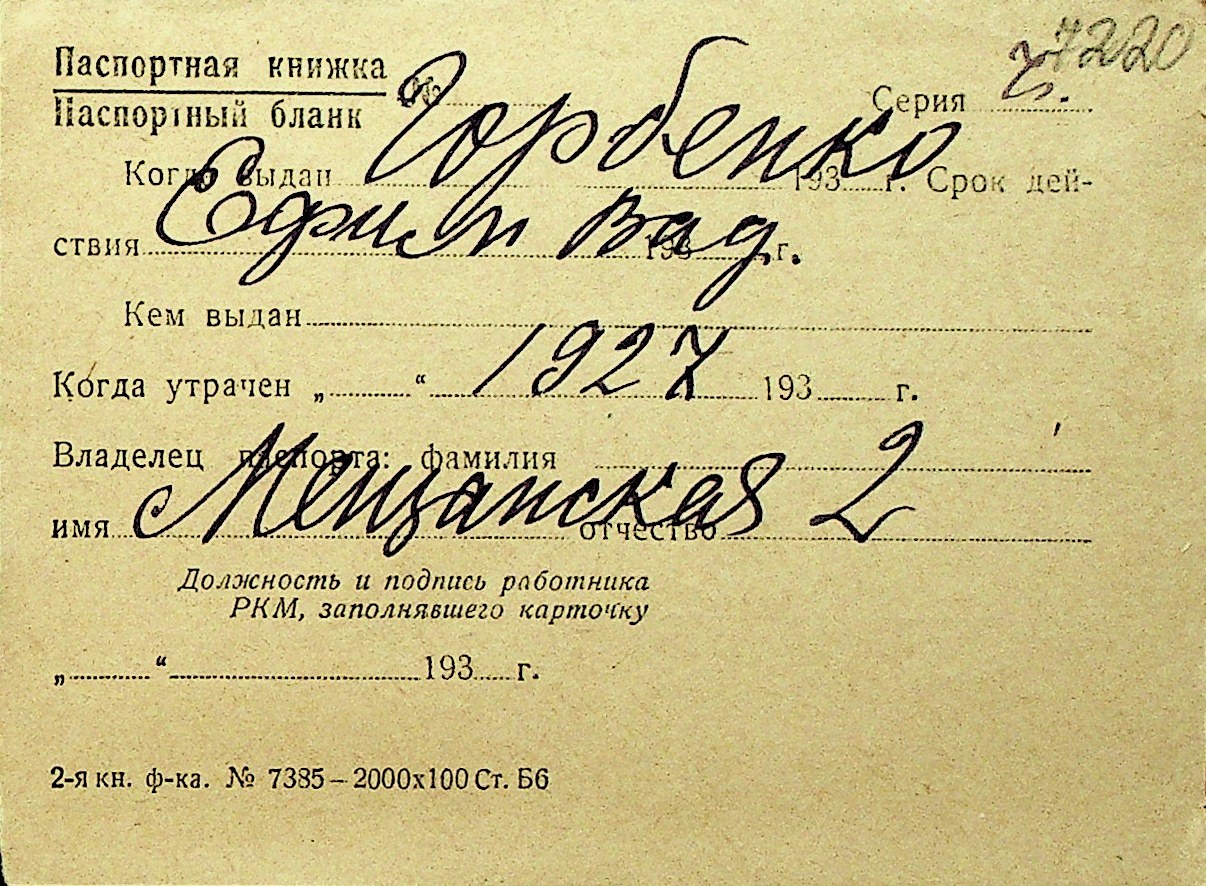 7220
Паспортная книжка
Паспортный бланк № Серия
Горбенко
Когда выдан 193 г. Срок дей-
Ефим Вад.
ствия 193 г.
Кем выдан
1927
Когда утрачен „ “ 193 г.
Владелец паспорта: фамилия
Мещанская 2
имя отчество
Должность и подпись работника
РКМ, заполнявшего карточку
„ “ 193 г.
2-я кн. ф-ка. № 7385 – 2000х100 Ст. Б6